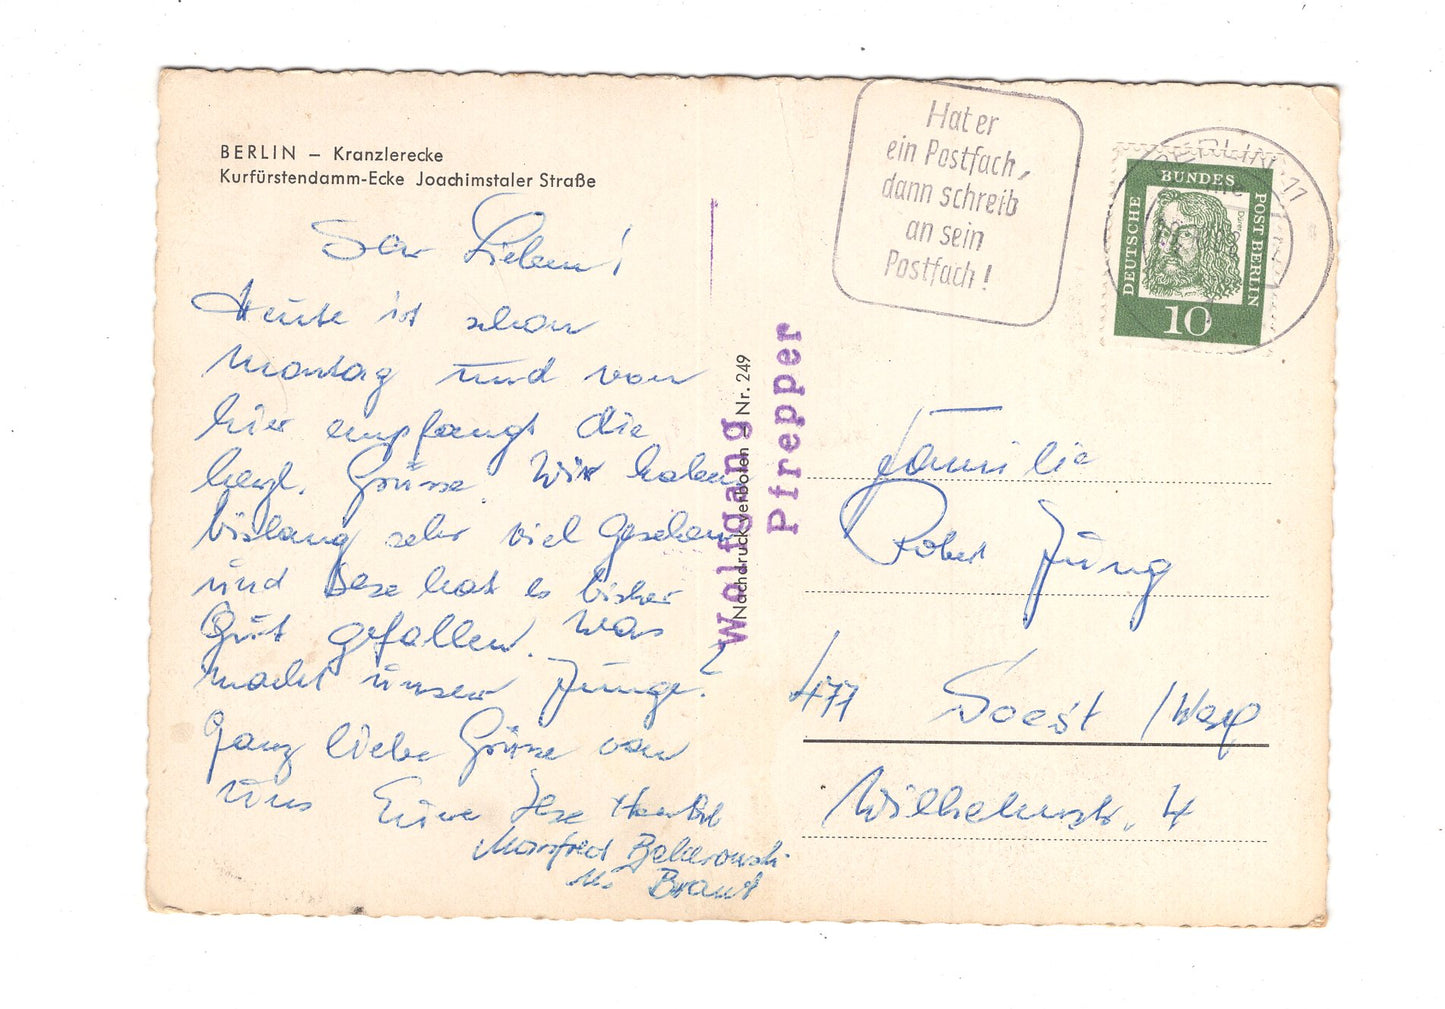 BERLIN – Kranzlerecke
Kurfürstendamm-Ecke Joachimstaler Straße
Lieben!
Heute ist schon
Montag und von
hier empfangt die
herzl. Grüsse. Wir haben
bislang sehr viel Gesehen
und hat es bisher
Gut gefallen. Was
macht unser Junge?
Ganz liebe Grüsse von
uns Eure Ilse
Manfred
u. Braut
Nachdruck verboten – Nr. 249
Wolfgang
Pfrepper
Hat er
ein Postfach,
dann schreib
an sein
Postfach!
BERLIN 11
DEUTSCHE
BUNDES
POST BERLIN
Dürer
10
Familie
Robert Jung
477 Soest /Westf
Wilhelmstr. 4